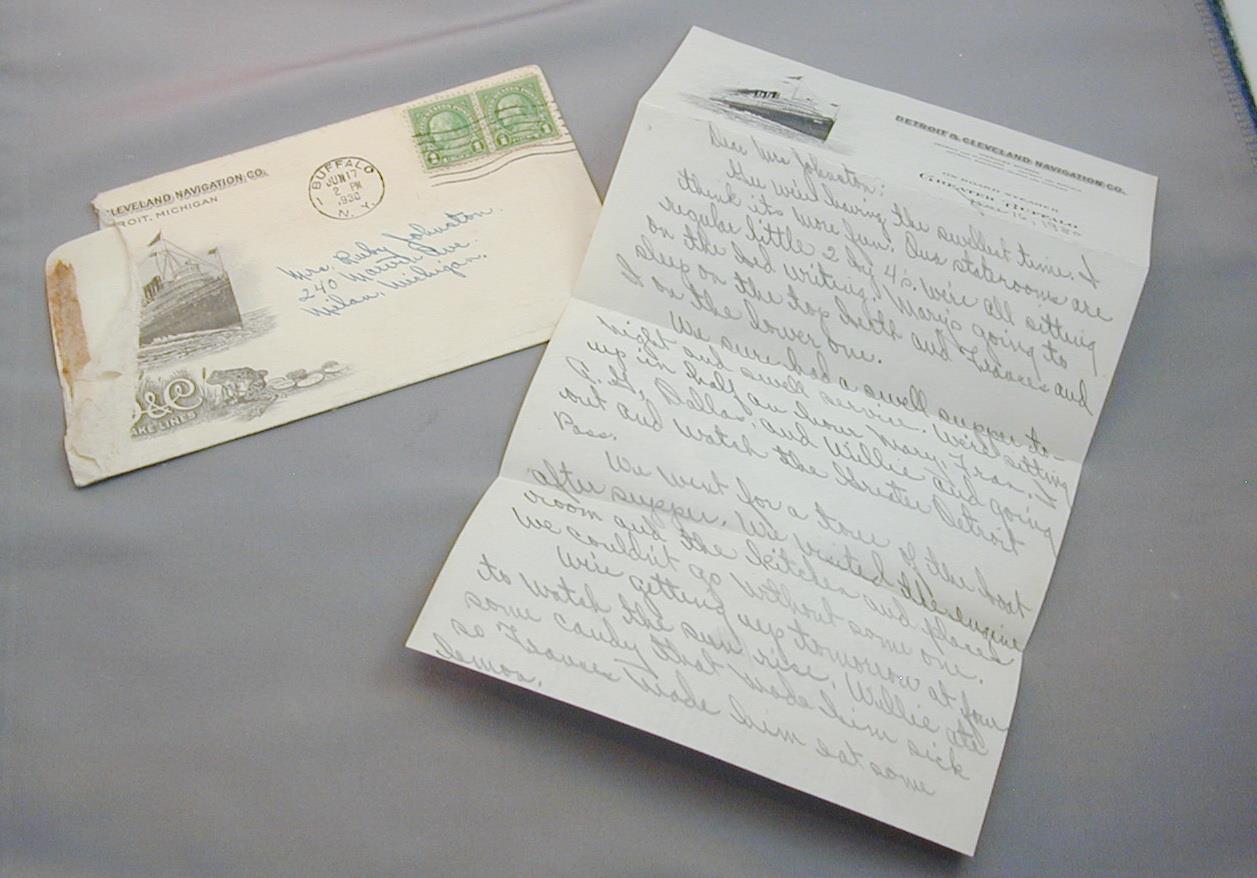 LEVELAND NAVIGATION CO.
ROIT, MICHIGAN
BUFFALO
1
JUN 17
2 PM
1930
N. Y.
1 1
1 1
Mrs. Ruby Johnston.
240 Ave.
Milan, Michigan.
D&C
LAKE LINES
DETROIT & CLEVELAND NAVIGATION CO.
ON BOARD STEAMER
GREATER BUFFALO
Dear Mrs Johnston:
We're having the swellest time. I
think it's more fun. Our staterooms are
regular little 2 by 4s. We're all sitting
on the bed writing. Mary's going to
sleep on the top berth and Frances and
I on the lower one.
We sure had a swell supper to-
night and swell service. We're sitting
up in half an hour Mary, Fran, I
Dallas, and Willie and going
out and watch the Greater Detroit
Pass.
We went for a tour of the boat
after supper. We visited the engine
room and the kitchen and places
we couldn't go without some one.
We're getting up tomorrow at four
to watch the sun rise. Willie ate
some candy that made him sick
so Frances made him eat some
lemon.